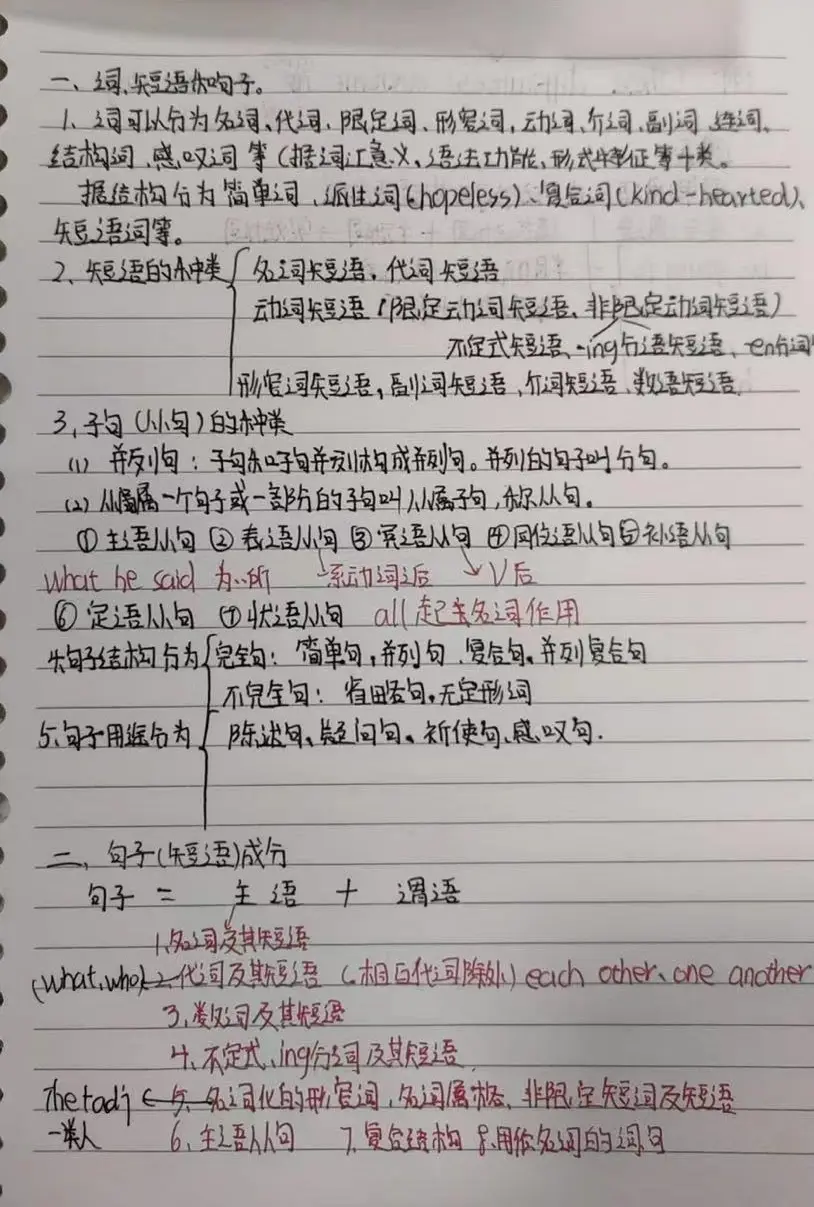 一、词、短语和句子。
1、词可以分为名词、代词、限定词、形容词,动词、介词、副词、连词、
结构词、感叹词等(据词汇意义、语法功能、形式特征等十类。
据结构分为简单词、派生词(hopeless)、复合词(kind-hearted)、
短语词等。
2、短语的种类 名词短语,代词短语
动词短语(限定动词短语、非限定动词短语)
不定式短语、-ing分语短语、-en分词
形容词短语,副词短语,介词短语、数语短语.
3,子句(从句)的种类
(1) 并列句:子句和子句并列构成并列句。并列的句子叫分句。
(2) 从属一个句子或一部分的子句叫从属子句,称从句。
①主语从句 ②表语从句 ③宾语从句 ④同位语从句⑤补语从句
what he said 为…所 系动词后 V后
⑥定语从句 ⑦状语从句 all起去名词作用
4、句子结构分为 完全句:简单句,并列句、复合句,并列复合句
不完全句:省略句,无定形词
5、句子用途分为 陈述句、疑问句、祈使句、感叹句.
二、句子(短语)成分
句子 = 主语 + 谓语
1,名词及其短语
(what,who) 2代词及其短语(相互代词除外) each other、one another
3,数词及其短语
4、不定式、ing分词及其短语.
The+adj 5、名词化的形容词,名词属格、非限定短词及短语
一类人 6,主语从句 7,复合结构 8,用作名词的词句